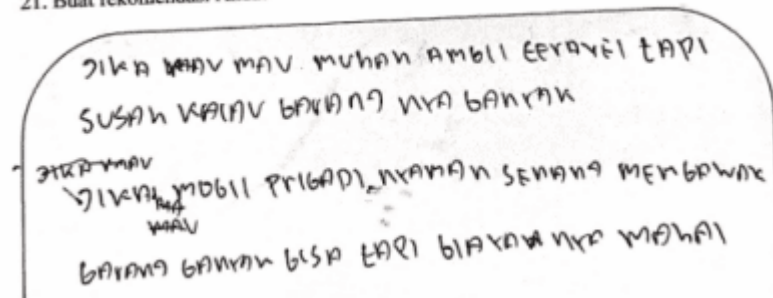 21. Buat rekomendasi
JIKA MAU MUHAH AMBIL EERAYEI TAPI
SUSAH KALAU BARANG NYA BANYAK
JIKA MAU
JIKA MAU MOBIL PRIBADI NYAMAN SENANG MEMBAWAK
BARANG BANYAK BISA TAPI BIAYAH NYA MAHAL